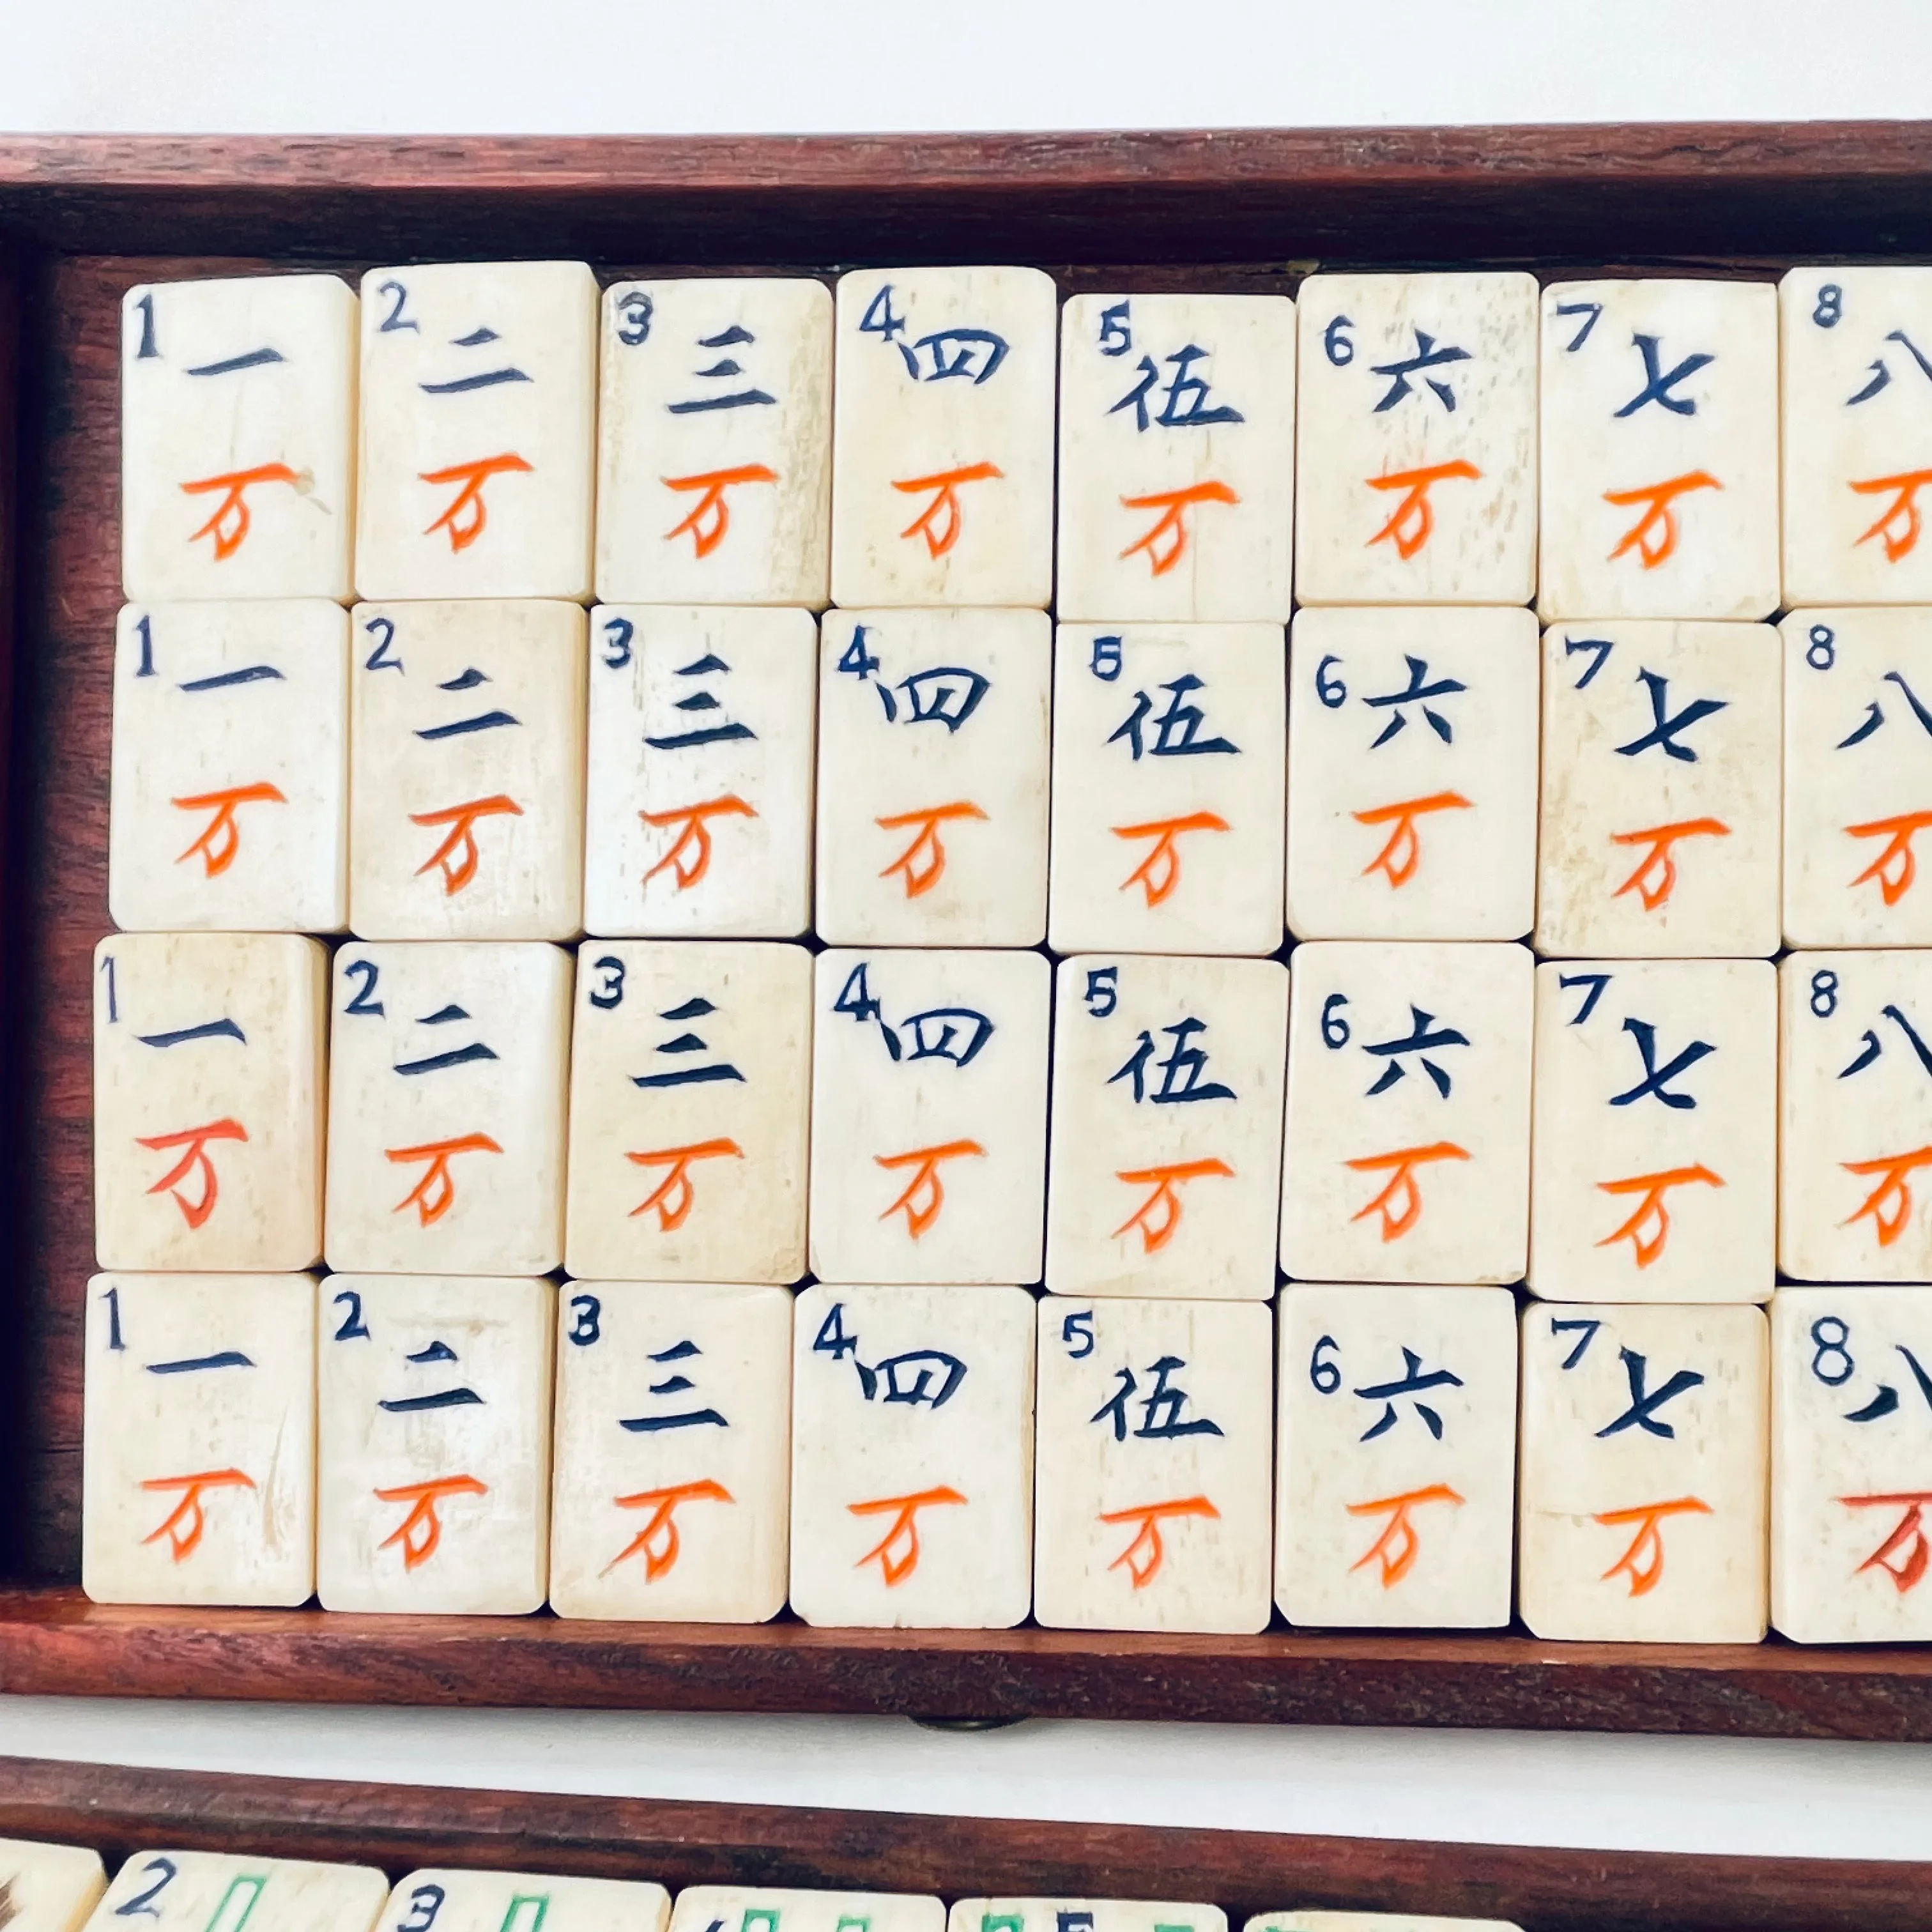 1 2 3 4 5 6 7 8
一 二 三 四 伍 六 七 八
万 万 万 万 万 万 万 万
1 2 3 4 5 6 7 8
一 二 三 四 伍 六 七 八
万 万 万 万 万 万 万 万
1 2 3 4 5 6 7 8
一 二 三 四 伍 六 七 八
万 万 万 万 万 万 万 万
1 2 3 4 5 6 7 8
一 二 三 四 伍 六 七 八
万 万 万 万 万 万 万 万
2 3 5